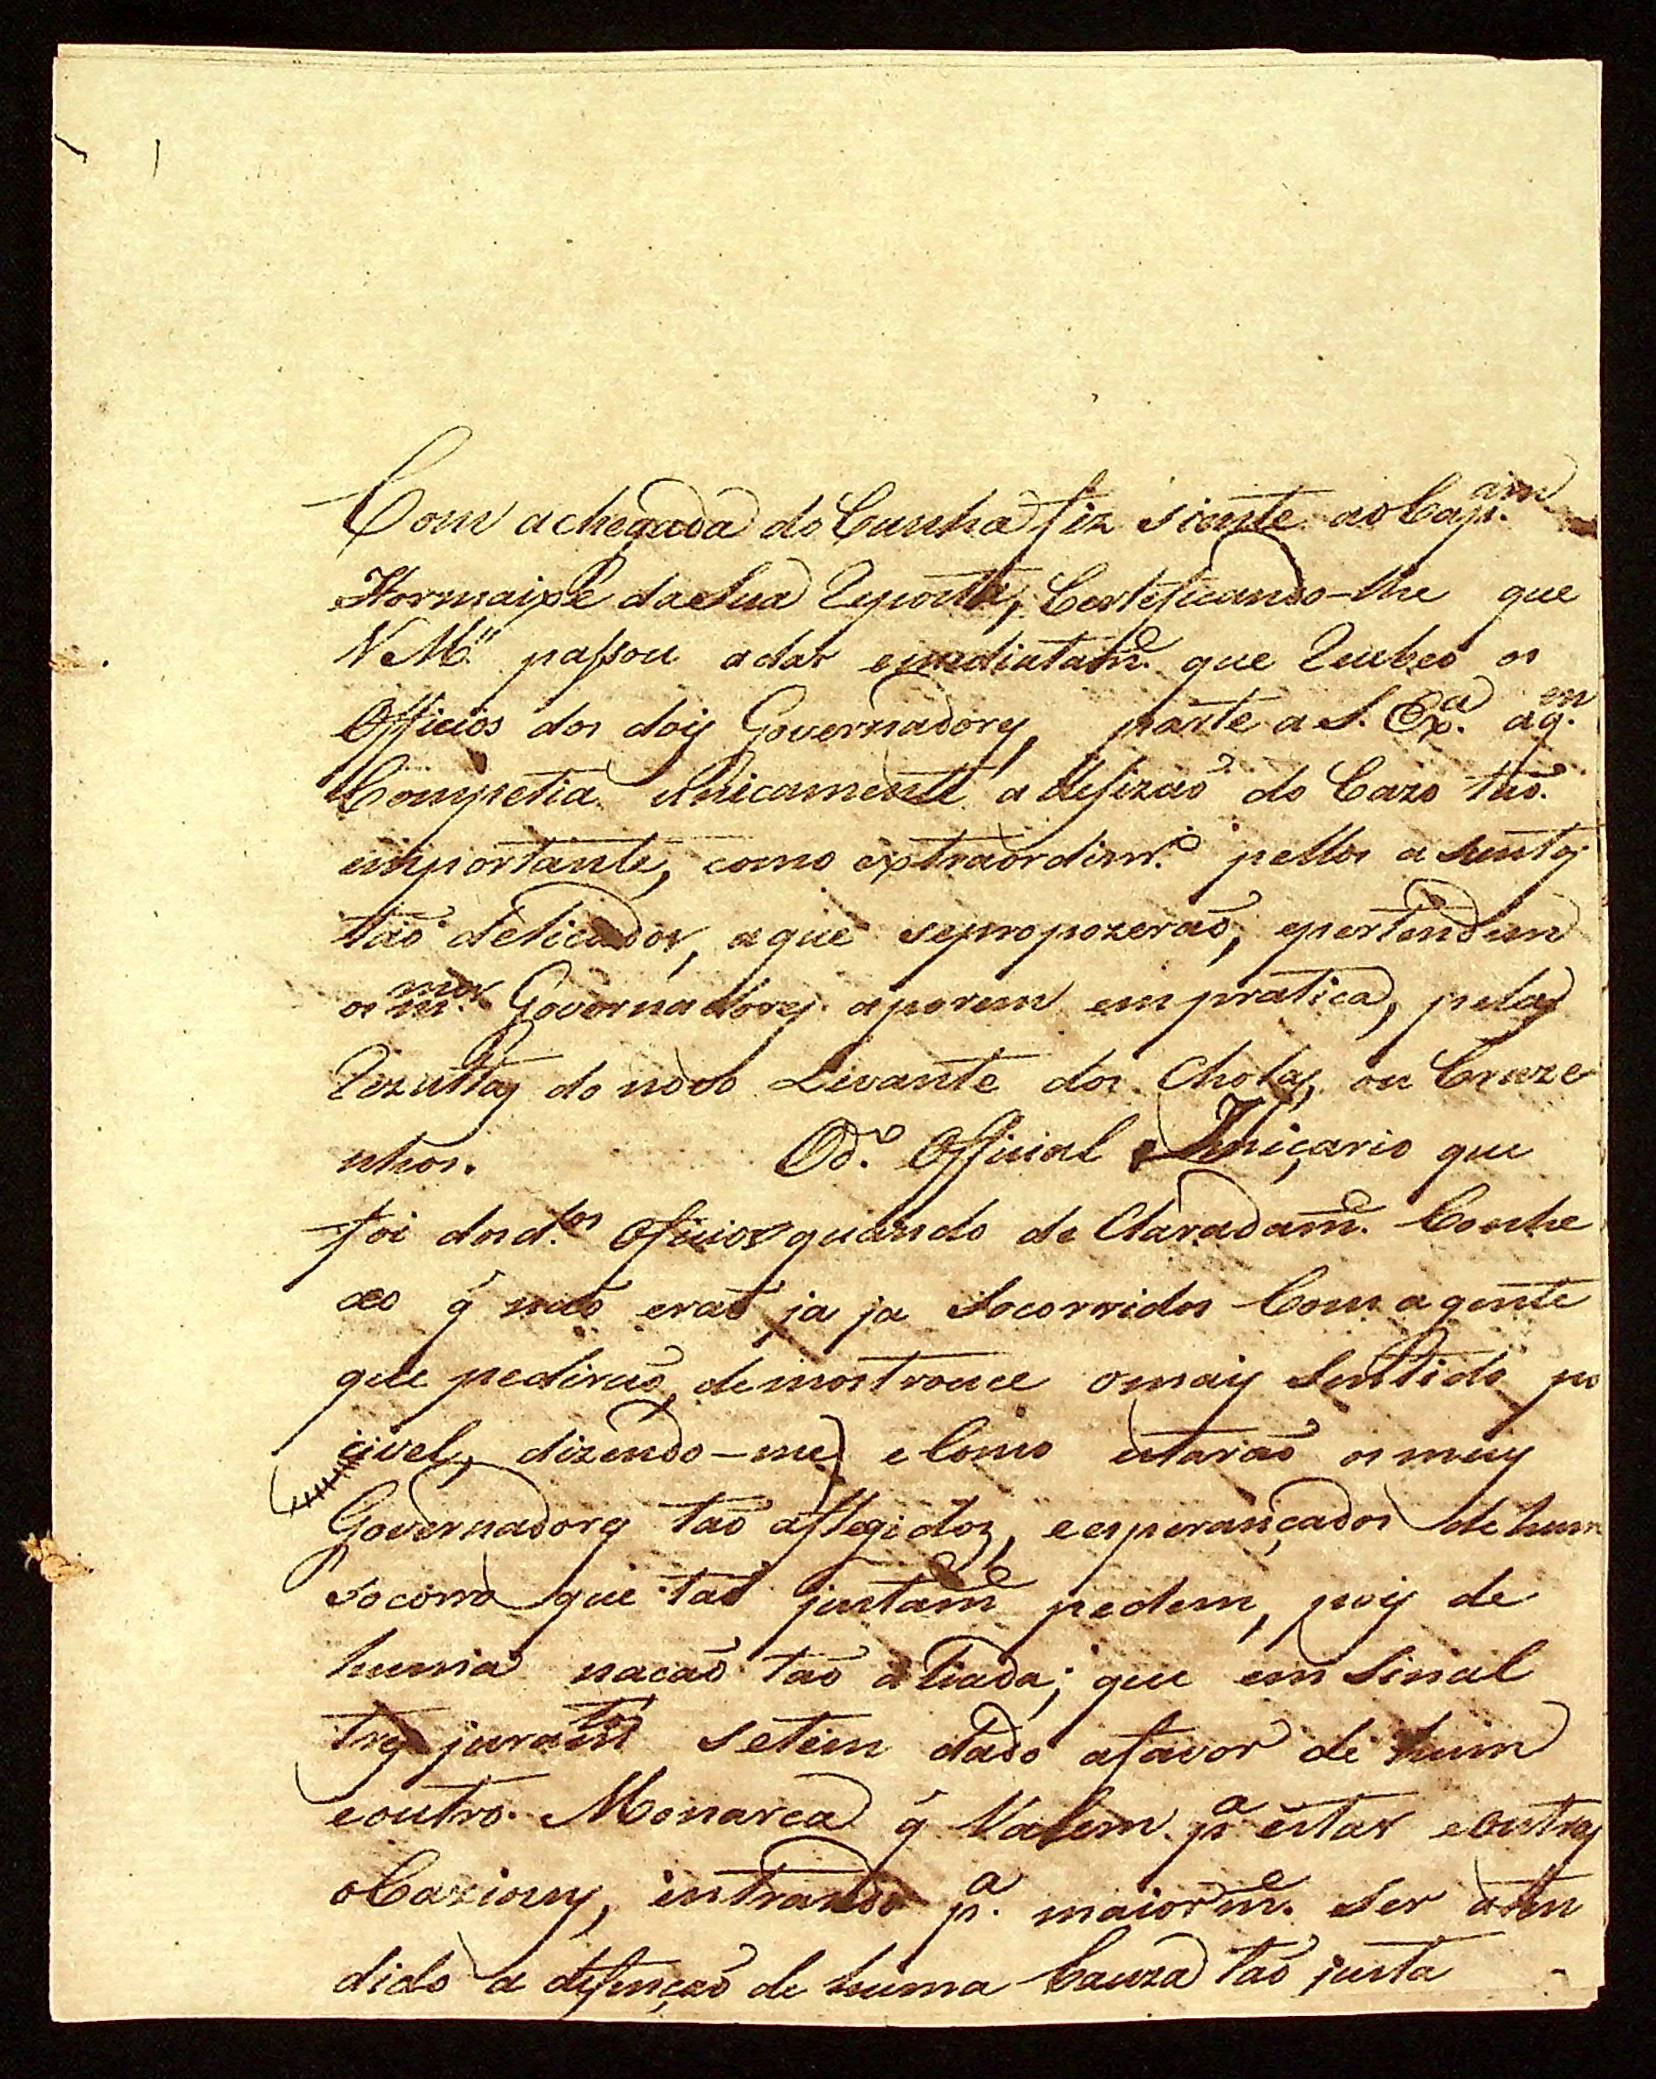 Com achegada do Cunha fiz siente ao Cap.am
Hormaixe dasua Reposta, Certeficando-lhe que
VM.ce passou adar emediatam.e que Recebeo os
Officios dos dois Governadores, parte a S. Ex.a aq.m
Competia unicamente a defizaõ do Cazo taõ
emportante, como extraordinr.o pellos asuntos
taõ delicados, aque sepropozeraõ, epertendem
os m.mos Governadores aporem empratica, pelas
Rezultas do novo Levante dos Cholas, ou Cruze
nhos. Od.o Official que
foi dos d.os Oficios quando de Claradam.e Conhe
ceo q̃ naõ eraõ ja ja Socorridos Com agente
que pediraõ, demostrouce omais Sentido po
civel, dizendo-me, e Como estaraõ os meus
Governadores taõ aflegidos, eesperançados de hum
socorro que taõ justam.e pedem, pois de
huma nacaõ taõ aliada; que em Sinal
tres juram.tos setem dado afavor de hum
eoutro Monarca q̃ Valem p.a estas eoutras
oCazions, entrando p.a maiorm.e ser aten
dido a defençaõ de huma Cauza taõ justa